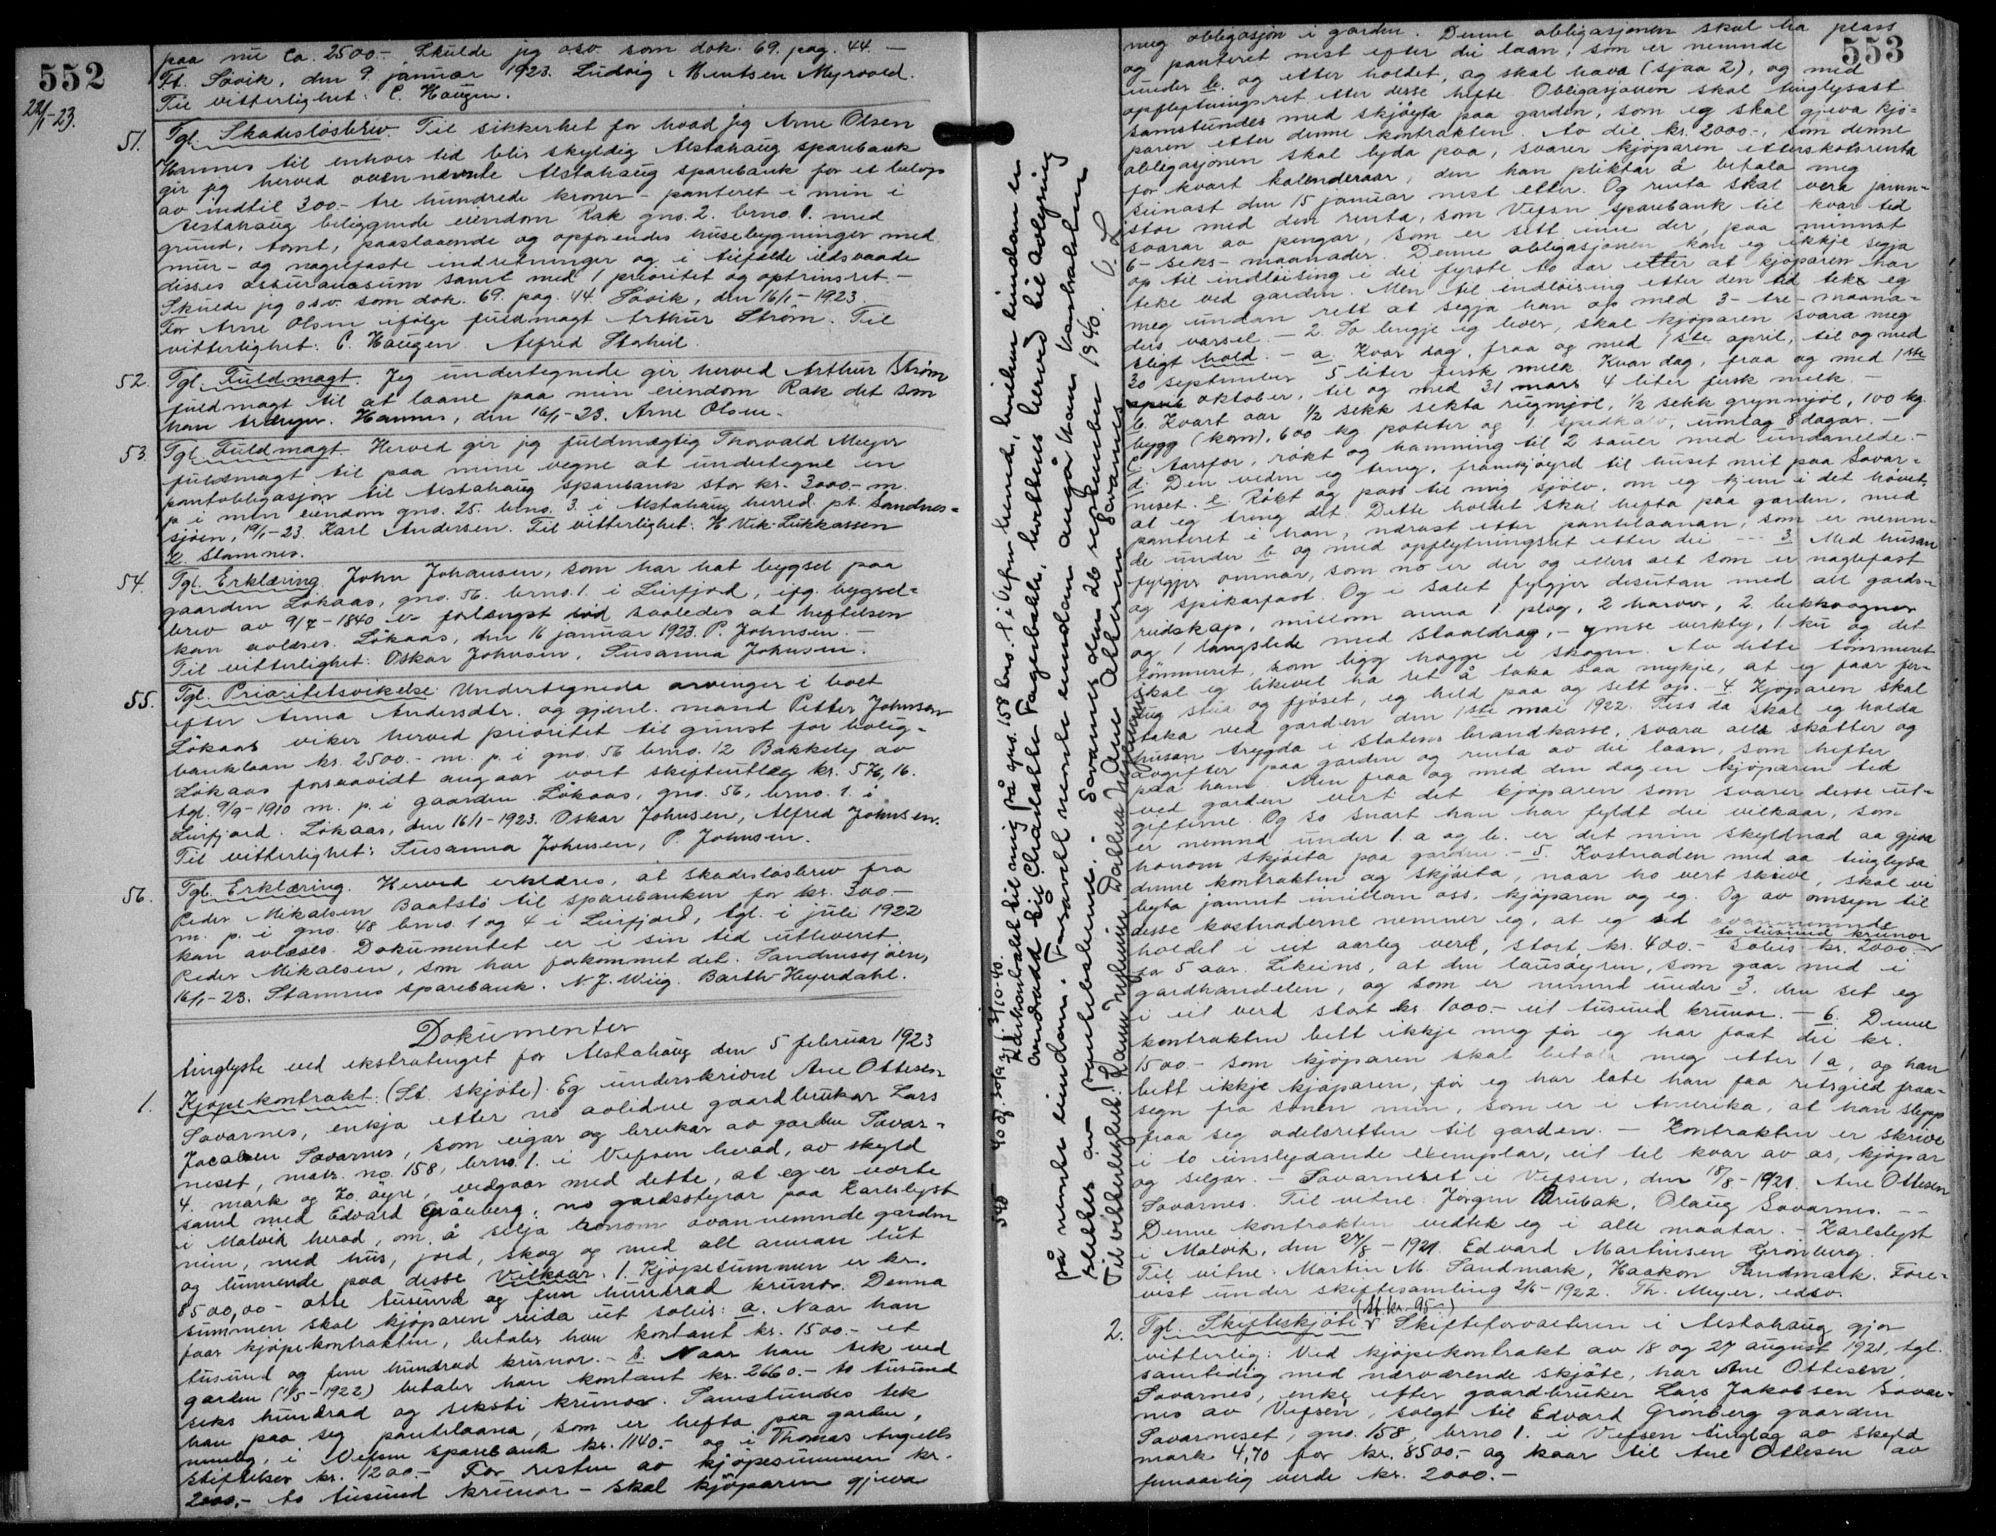 552
22/1-23.
paa nu ca. 2500.- Skulde jeg o.s.v. som dok. 69. pag. 44. -
Pt. Søvik, den 9. januar 1923. Ludvig Mentsen Myrvold.
Til vitterlighet: C. Haugen.
51. Tgl. Skadesløsbrev. Til sikkerhet for hvad jeg Arne Olsen
Hamnes til enhver tid blir skyldig Alstahaug sparebank
gir jeg herved ovennævnte Alstahaug sparebank for et beløp
av indtil 300.- tre hundrede kroner - panteret i min i
Alstahaug beliggende eiendom Rak gno. 2. brno. 1. med
grund, tomt, paastaaende og opførendes husebygninger med
mur- og nagelfaste indretninger og i tilfælde ildsvaade
disses assurancesum samt med 1 prioritet og optrinsret.-
Skulde jeg o.s.v. som dok. 69. pag. 44. Søvik, den 16/1-1923.
For Arne Olsen ifølge fuldmagt Arthur Strøm. Til
vitterlighet: C. Haugen. Alfred
52. Tgl. Fuldmagt. Jeg undertegnede gir herved Arthur Strøm
fuldmagt til at laane paa min eiendom Rak det som
han trænger. Hamnes, den 16/1-23. Arne Olsen.
53. Tgl. Fuldmagt. Herved gir jeg fuldmægtig Thorvald Meyer
fuldmagt til paa mine vegne at undertegne en
pantobligasjon til Alstahaug sparebank stor kr. 3000.- m.
p. i min eiendom gno. 25. brno. 3. i Alstahaug herred. pt. Sandnes=
sjøen, 19/1-23. Karl Andersen. Til vitterlighet: H. Vik. Lukkassen
Stamnes.
54. Tgl. Erklæring. John Johansen, som har hat bygsel paa
gaarden Løkaas, gno. 56. brno. 1. i Leirfjord, ifg. bygsel=
brev av 9/7-1840 er forlængst død saaledes at heftelsen
kan avlæses. Løkaas, den 16 januar 1923. P. Johnsen. -
Til vitterlighet: Oskar Johnsen, Susanna Johnsen.
55. Tgl. Prioritetsvikelse. Undertegnede arvinger i boet
efter Anna Andersdtr. og gjenl. mand Petter Johnsen
Løkaas viker herved prioritet til gunst for bolig=
banklaan kr. 2500.- m. p. i gno. 56 brno. 12 Bakkely av
Løkaas forsaavidt angaar vort skifteutlæg kr. 576,16.
tgl. 9/9-1910 m. p. i gaarden Løkaas, gno. 56, brno. 1. i
Leirfjord. Løkaas, den 16/1-1923. Oskar Johnsen, Alfred Johnsen.
Til vitterlighet: Susanna Johnsen, P. Johnsen.
56. Tgl. Erklæring. Herved erklæres, at skadesløsbrev fra
Peder Mikalsen Baatstø til sparebanken for kr. 300.-
m. p. i gno. 48 brno. 1 og 4 i Leirfjord, tgl. i juli 1922
kan avlæses. Dokumentet er i sin tid utleveret
Peder Mikalsen, som har forkommet det. Sandnessjøen,
16/1-23. Stamnes sparebank. N. J. Wiig. Barth Heyerdahl.
Dokumenter
tinglyste ved ekstratinget for Alstahaug den 5 februar 1923
1. Kjøpekontrakt. (St. skjøte). Eg underskrivne Ane Ottesen
Savarnes, enkja etter no avlidne gaardbrukar Lars
Jacobsen Savarnes, som eigar og brukar av garden Savar=
neset, matr. no. 158, brno. 1. i Vefsen herad, av skyld
4. mark og 70. øyre, vedgaar med dette, at eg er vorte
samd med Edvard Grønberg, no gardsstyrar paa Karlslyst
i Malvik herad, om å selja honom ovannemnde garden
min, med hus, jord, skog og med alt annan lut
og lunnende paa desse Vilkaar. 1. Kjøpesummen er kr.
8500,00- otte tusund og fem hundrad krunor. Denna
summen skal kjøparen reida ut soleis: a. Naar han
faar kjøpekontrakten, betaler han kontant kr. 1500.- et
tusund og fem hundrad krunor. - b. Naar han tek ved
garden (1/5-1922) betaler han kontant kr. 2660.- to tusund
seks hundrad og seksti krunor. Samstundes tek
han paa seg pantelaana, som er hefta paa garden,
nemleg, i Vefsen sparebank kr. 1140.- og i Thomas Angells
stiftelser kr. 1200.- For resten av kjøpesummen kr.
2000.- to tusund krunor - skal kjøparen gjeva
540 40 3/10-40.
Hårkonsdal til mig på gnr. 158 bnr. 1 i Vefsn herred, hvilken eiendom er
omdradd til Charlotte Fagerbakke, herved til avlysning
på nevnte eiendom. Forsåvidt nevnte eiendom angår kan kårheftelsen
slettes av panteboken. - Savarnes den 26 september 1940.
Ane Akkersen Savarnes
Til vitterlighet:
553
meg obligasjon i garden. Denne obligasjonen skal ha plass
og panteret nest efter dei laan, som er nemnde
under b. og etter holdet, eg skal hava (sjaa 2), og med
opflytningsret etter desse hefte. Obligasjonen skal tinglysast
samstundes med skjøyta paa garden, som eg skal gjeva kjø=
paren etter denne kontrakten. Av dei kr. 2000.-, som denne
obligasjonen skal lyda paa, svarer kjøparen etterskotsrenta
for kvart kalenderaar, den han pliktar å betala meg
seinast den 15 januar nest etter. Og renta skal vera jamn=
stor med den renta, som Vefsn sparebank til kvar tid
svarar av pengar, som er sett inn der, paa minnst
6-seks- maanader. Denne obligasjonen kan eg ikkje segja
op til indløising i dei fyrste to aar etter at kjøparen har
teke ved garden. Men til indløising etter den tid tek eg
meg undan rett at segja han op med 3- tre- maana=
ders varsel. - 2. So lengje eg lever, skal kjøparen svara meg
sligt hold. - a. Kvar dag, fraa og med 1ste april, til og med
30 september 5 liter fersk melk. Kvar dag, fraa og med 1ste
oktober, til og med 31 mars 4 liter fersk melk. -
b. Kvart aar 1/2 sekk sekta rugmjøl, 1/2 sekk grynmjøl, 100 kg.
bygg (korn), 600 kg poteter og 1 spedkalv, umlag 8 dagar. -
c. Aarsfor, røkt og hamning til 2 sauer med undanelde. -
d. Den veden eg treng, framkjøyrd til huset mit paa Savar=
neset. e. Røkt og pass til meg sjølv, om eg kjem i det høvet,
at eg treng det. Dette holdet skal hefta paa garden, med
panteret i han, nærast etter pantelaanan, som er nemn=
de under b og med opflytningsret etter dei - - - 3. Med husan
fylgjer omnar, som no er der og ellers alt som er naglefast
og spikarfast. Og i salet fylgjer desutan med all gards=
reidskap, millom anna 1 plog, 2 harver, 2 lukkvogner
og 1 langslede med staaldrag, - ymse verkty, 1 ku og det
tømmeret, som ligg hogge i skogen. Av dette tømmeret
skal eg likevel ha ret å taka saa mykje, at eg faar fer=
dug stua og fjøset, eg held paa og sett op. 4. Kjøparen skal
taka ved garden den 1ste mai 1922. Tess da skal eg holda
husan trygda i Statens brandkasse, svara alle skatter og
avgifter paa garden og renta av dei laan, som hefter
paa han. Men fraa og med den dagen kjøparen tek
ved garden vert det kjøparen som svarer desse ut=
gifterne. Og so snart han har fyldt dei vilkaar, som
er nemnd under 1. a og b. er det min skyldnad aa gjeva
honom skjøita paa garden. - 5. Kostnaden med aa tinglysa
denne kontrakten og skjøita, naar ho vert skreve, skal vi
byta jamnt imillom oss, kjøparen og eg. Og av omsyn til
desse kostnaderne nemner eg, at eg set ovannemnde
holdet i eit aarleg verd, stort kr. 400.- soleis kr. 2000.- to tusund krunor
for 5 aar. Likeins, at den lausøyren, som gaar med i
gardhandelen, og som er nemnd under 3. den set eg
i eit verd stort kr. 1000.- eit tusund krunor. - 6. Denne
kontrakten bitt ikkje meg før eg har faat dei kr.
1500.- som kjøparen skal betala meg etter 1 a, og han
bitt ikkje kjøparen, før eg har late han faa retsgild fraa=
segn fra sonen min, som er i Amerika, at han slepp
fraa seg odelsretten til garden. - Kontrakten er skrive
i to einslydande eksemplar, eit til kvar av os, kjøpar
og seljar. - Savarneset i Vefsen, den 18/8-1921. Ane Ottesen
Savarnes. Til vitne: Jørgen Brubak, Olaug Savarnes. - -
Denne kontrakten vedtek eg i alle maatar. - Karlslyst
i Malvik, den 27/8-1921. Edvard Martinsen Grønberg.
Til vitne: Martin M. Sandmark, Haakon Sandmark. Fore=
vist under skiftesamling 2/6-1922. Th. Meyer, edsv.
(St. kr. 95.-)
2. Tgl. Skifteskjøte. Skifteforvalteren i Alstahaug gjør
vitterlig: Ved kjøpekontrakt av 18 og 27 august 1921, tgl.
samtidig med nærværende skjøte, har Ane Ottesen
Savarnes, enke efter gaardbruker Lars Jakobsen Savar=
nes av Vefsen, solgt til Edvard Grønberg gaarden
Savarneset, gno. 158, brno 1. i Vefsen tinglag av skyld
mark 4,70 for kr. 8500.- og kaar til Ane Ottesen av
femaarlig verdi kr. 2000.-